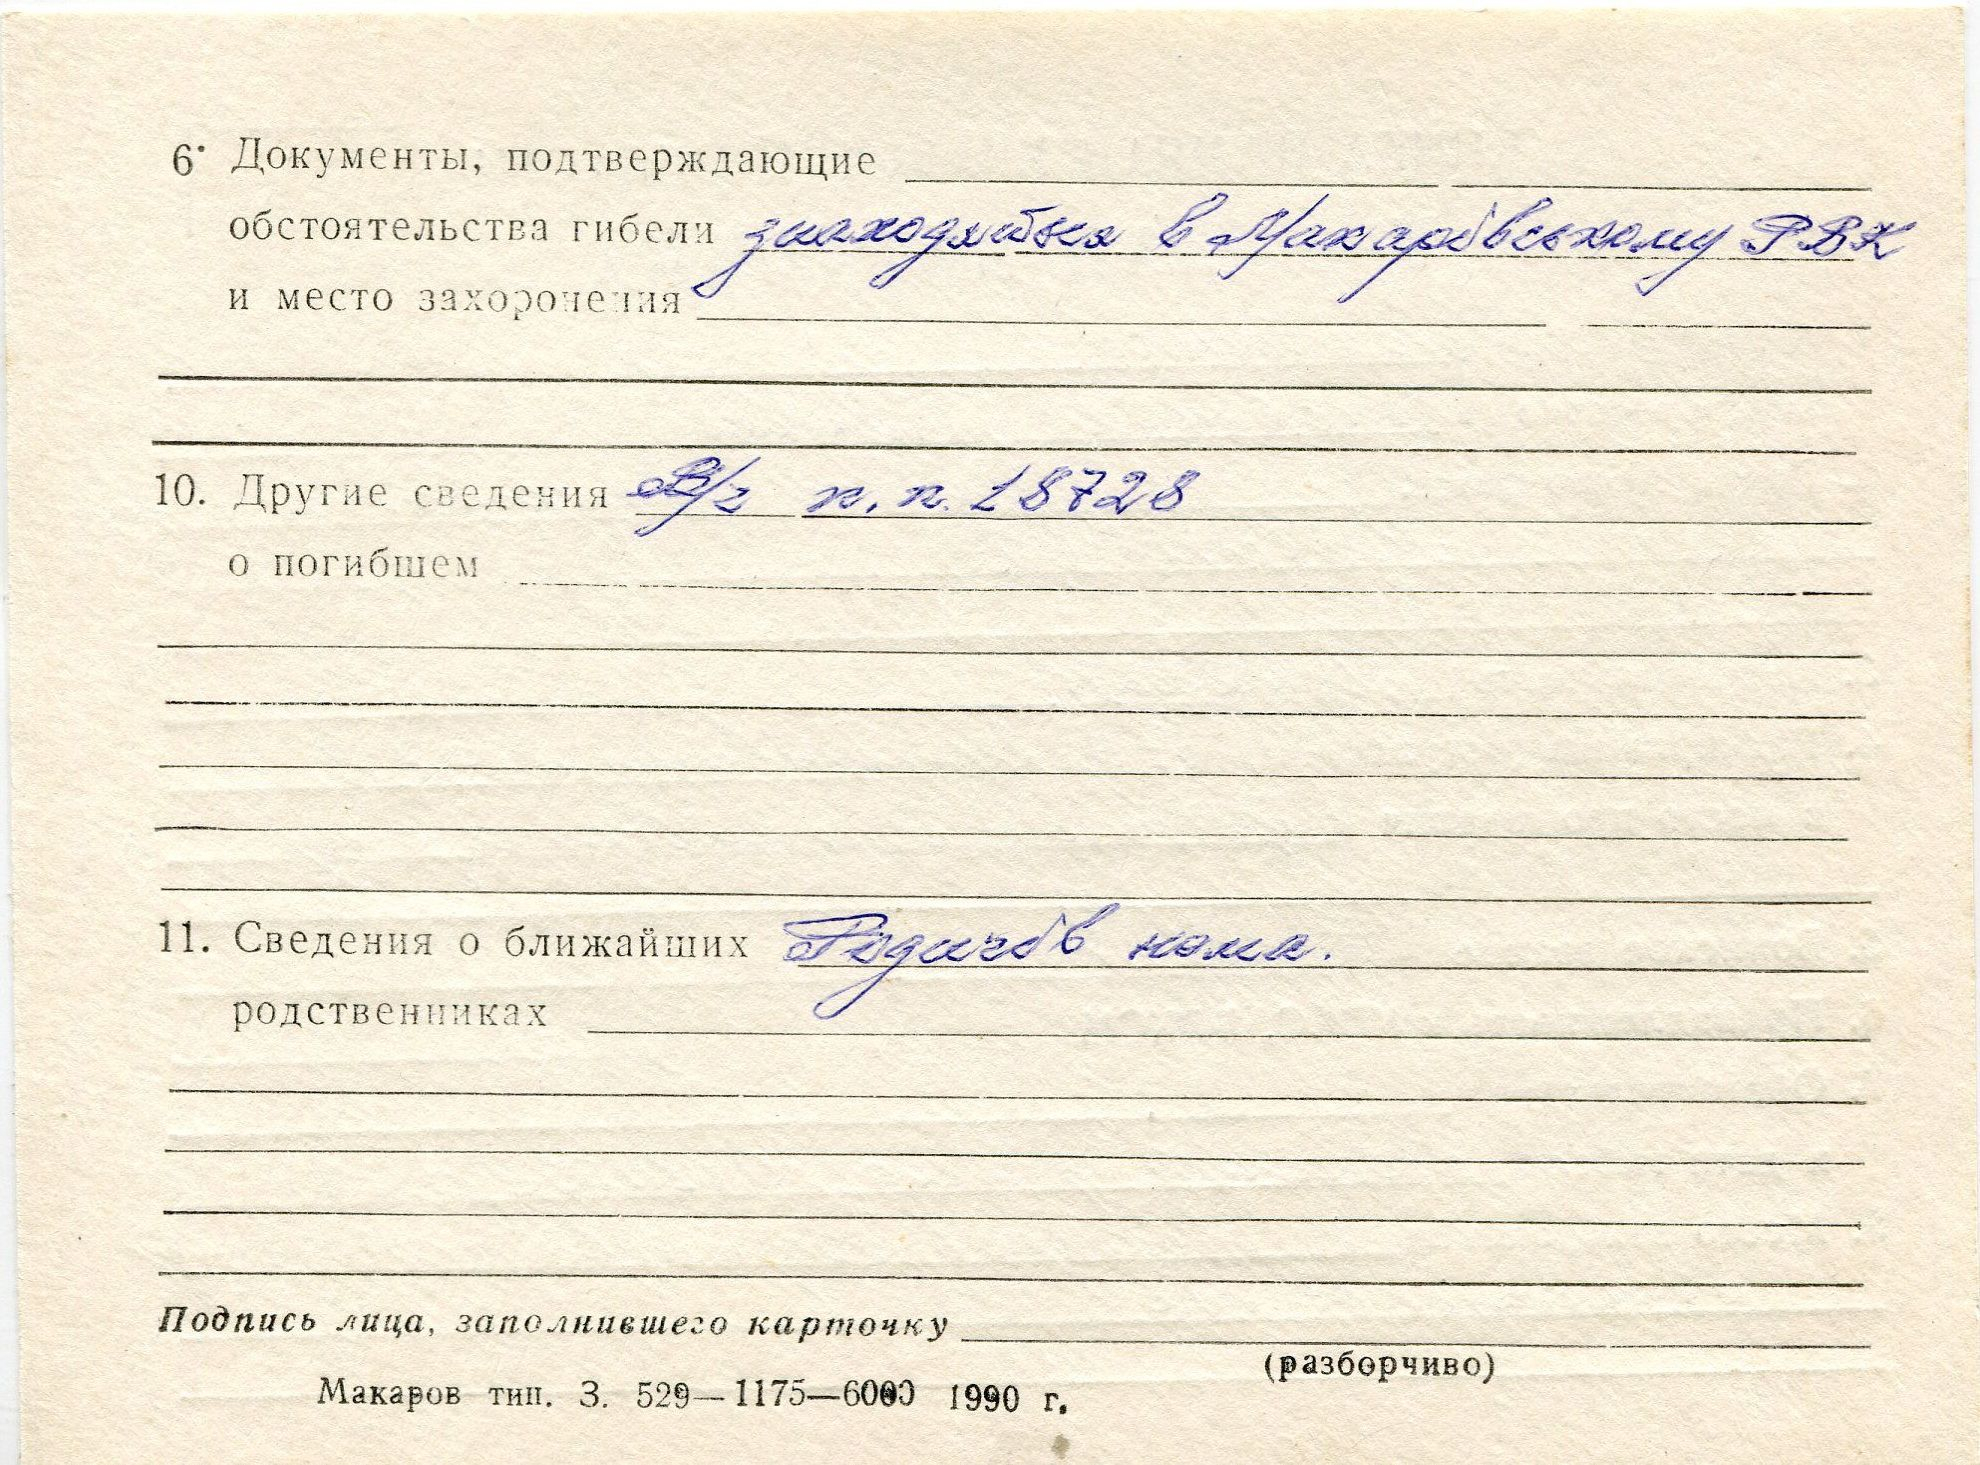 6. Документы, подтверждающие
обстоятельства гибели знаходяться в Макарівському РВК
и место захоронения
10. Другие сведения В/ч п.п. 18728
о погибшем
11. Сведения о ближайших Родичів нема.
родственниках
Подпись лица, заполнившего карточку
(разборчиво)
Макаров тип. З. 529—1175—6000 1990 г.